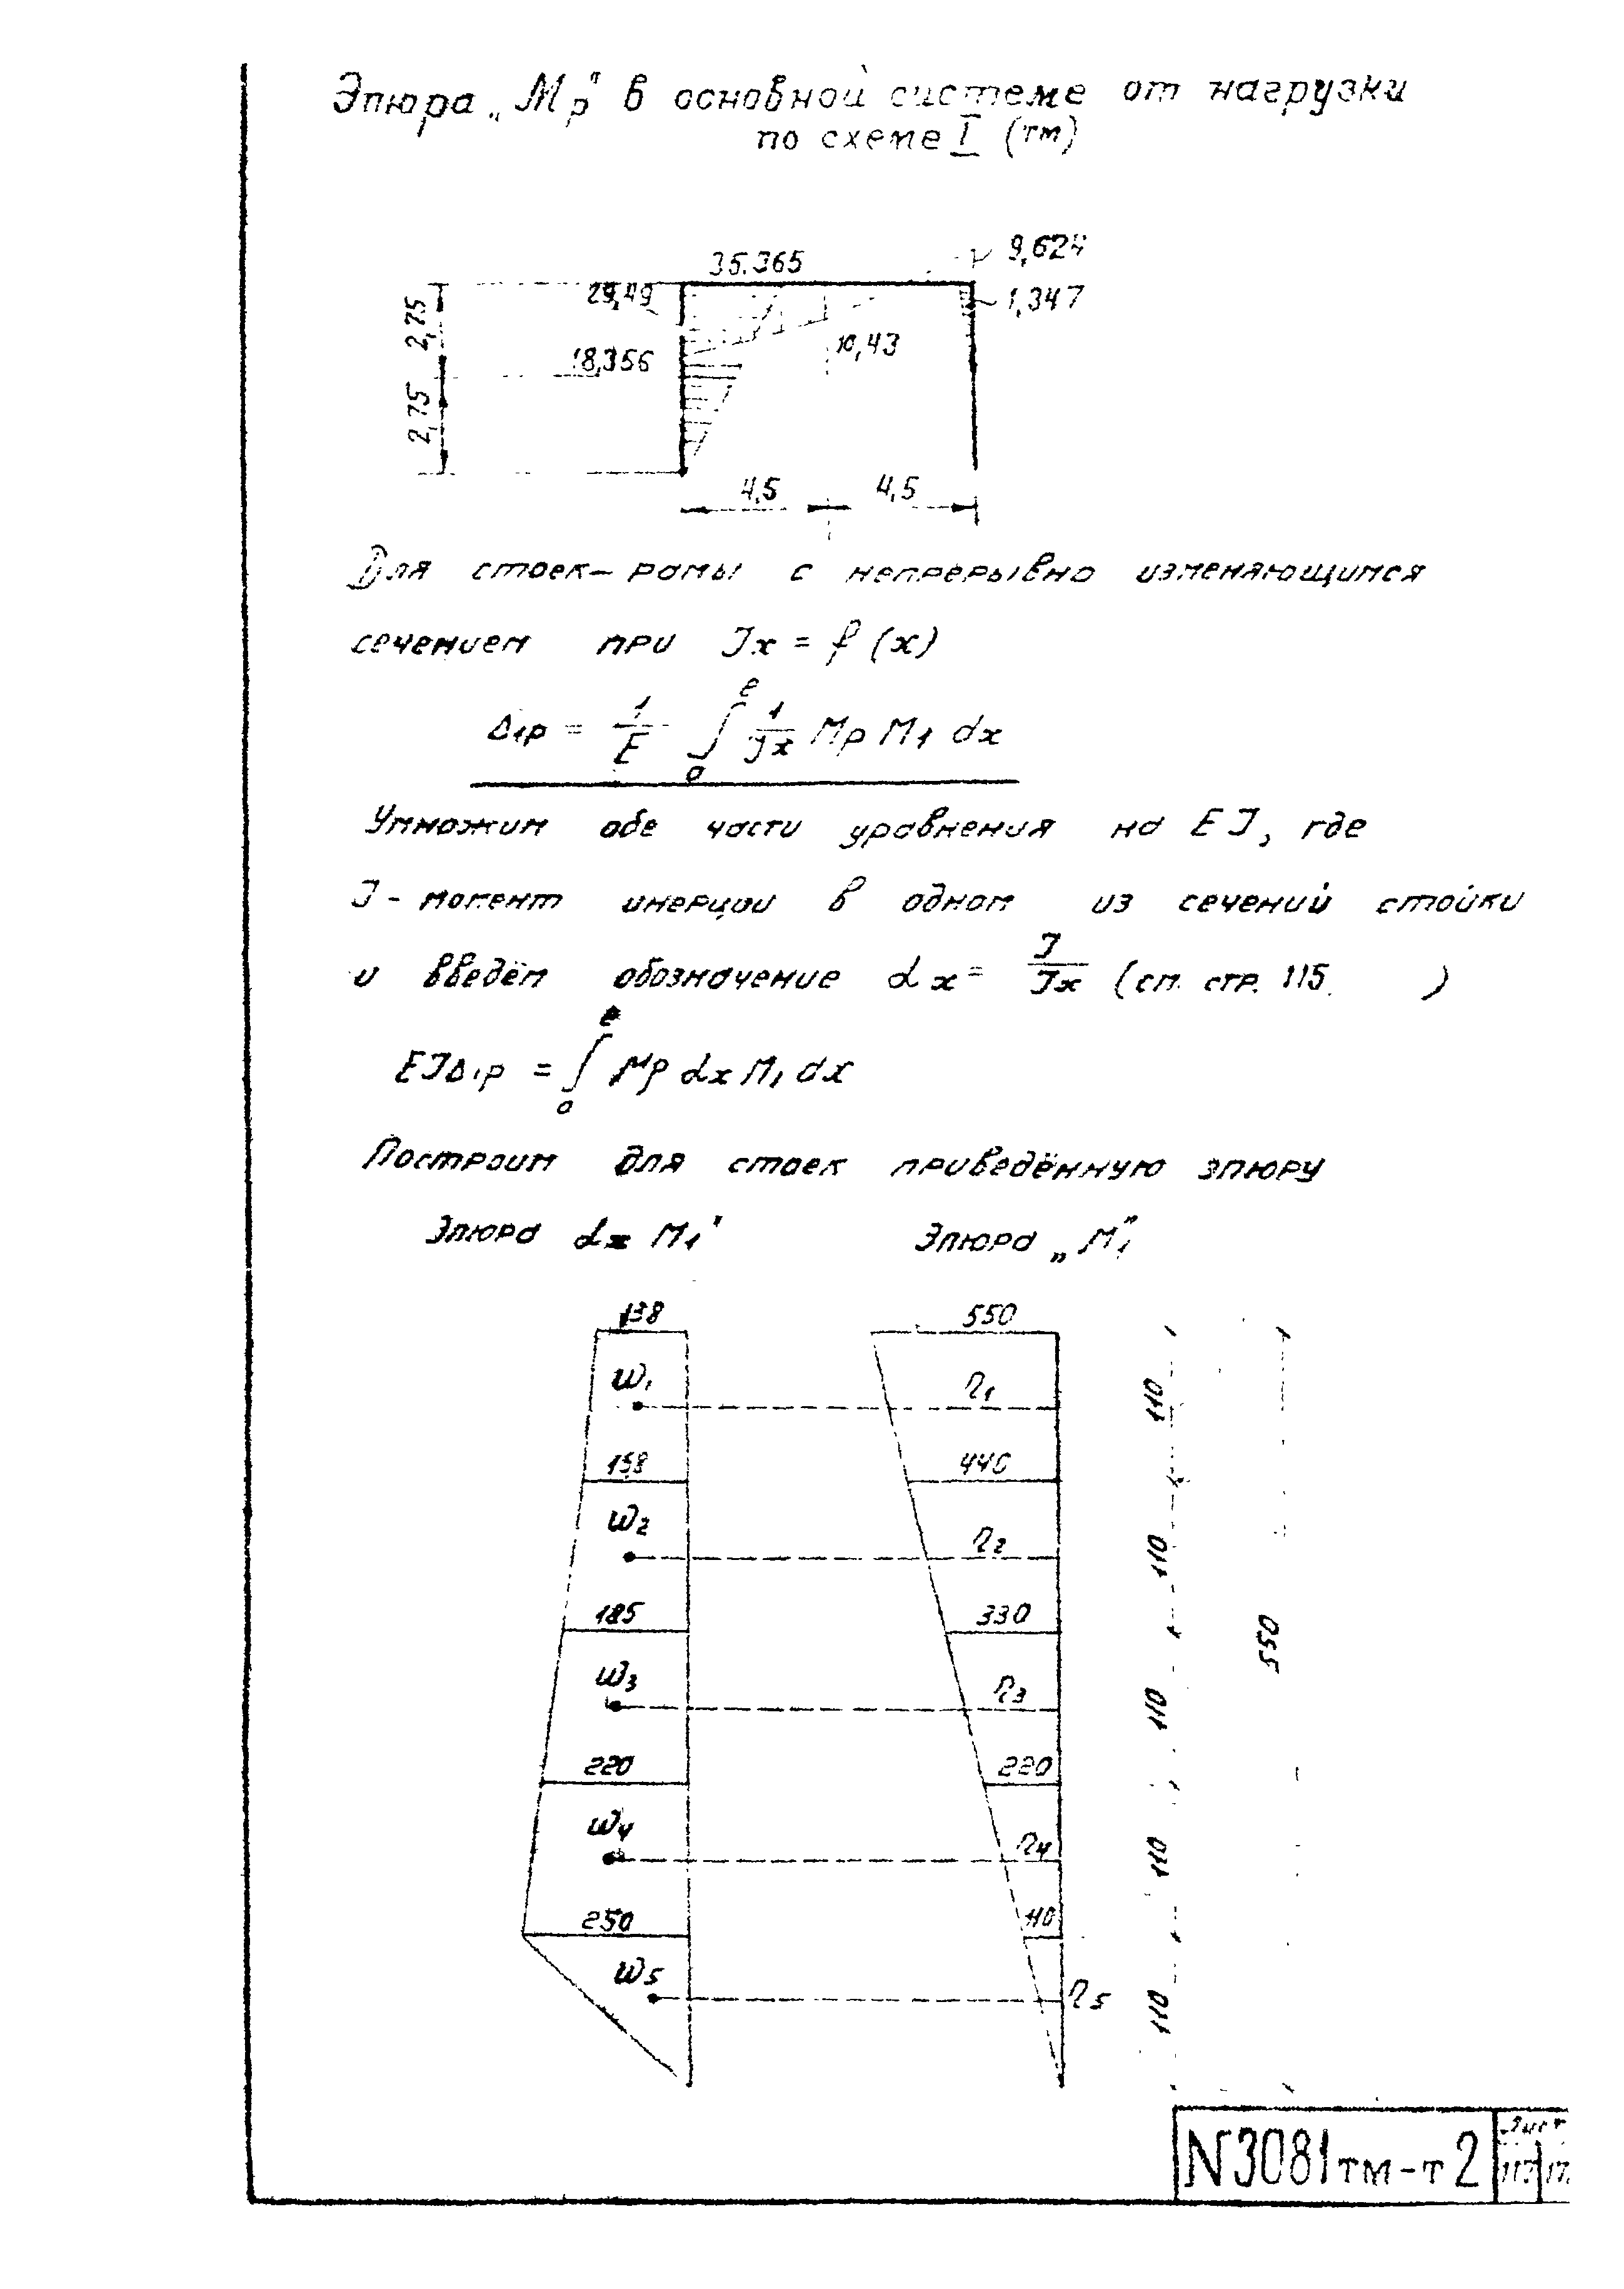 Эпюра „Mр" в основной системе от нагрузки
по схеме I (тм)
35.365
9,624
29,49
1,347
2,75
18,356
10,43
2,75
4,5
4,5
Для стоек- рамы с непрерывно изменяющимся
сечением при Jx = f (x)
Δ1р = 1/E ∫ 1/Jx Mр M1 dx
Умножим обе части уравнения на EJ, где
J - момент инерции в одном из сечений стойки
и введём обозначение αx = J/Jx (см. стр. 115 )
EJΔ1р = ∫ Mр αx M1 dx
Построим для стоек приведённую эпюру
Эпюра αx M1' Эпюра „M1"
138 550
ω1 η1 110
158 440
ω2 η2 110
185 330
550
ω3 η3 110
220 220
ω4 η4 110
250 110
ω5 η5 110
N3081тм-т2
Лист